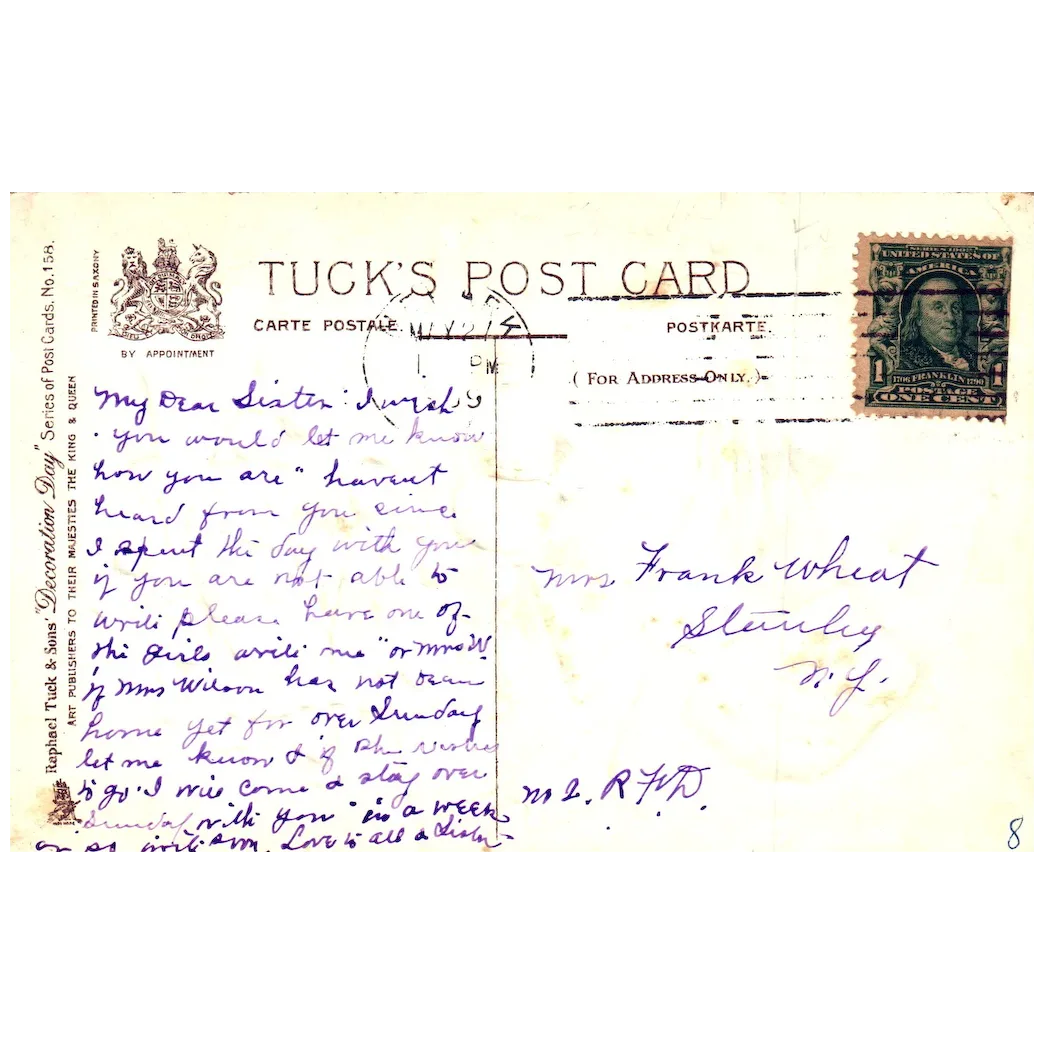 Raphael Tuck & Sons' "Decoration Day" Series of Post Cards. No. 158.
ART PUBLISHERS TO THEIR MAJESTIES THE KING & QUEEN
PRINTED IN SAXONY
BY APPOINTMENT
TUCK'S POST CARD
CARTE POSTALE.
POSTKARTE.
( FOR ADDRESS ONLY. )
PM
SERIES 1902
UNITED STATES OF
AMERICA
1 1706 FRANKLIN 1790 1
POSTAGE
ONE CENT
My Dear Sister I wish
you would let me know
how you are" havent
heard from you since
I spent the day with you
if you are not able to
write please have one of
the girls write me "or Mrs W.
if Mrs Wilson has not been
home yet for over Sunday
let me know & if she wishes
to go I will come & stay over
Sunday with you" in a week
or so write soon. Love to all a Sister
Mrs Frank Wheat
Stanley
N.Y.
No 2. R F D.
8